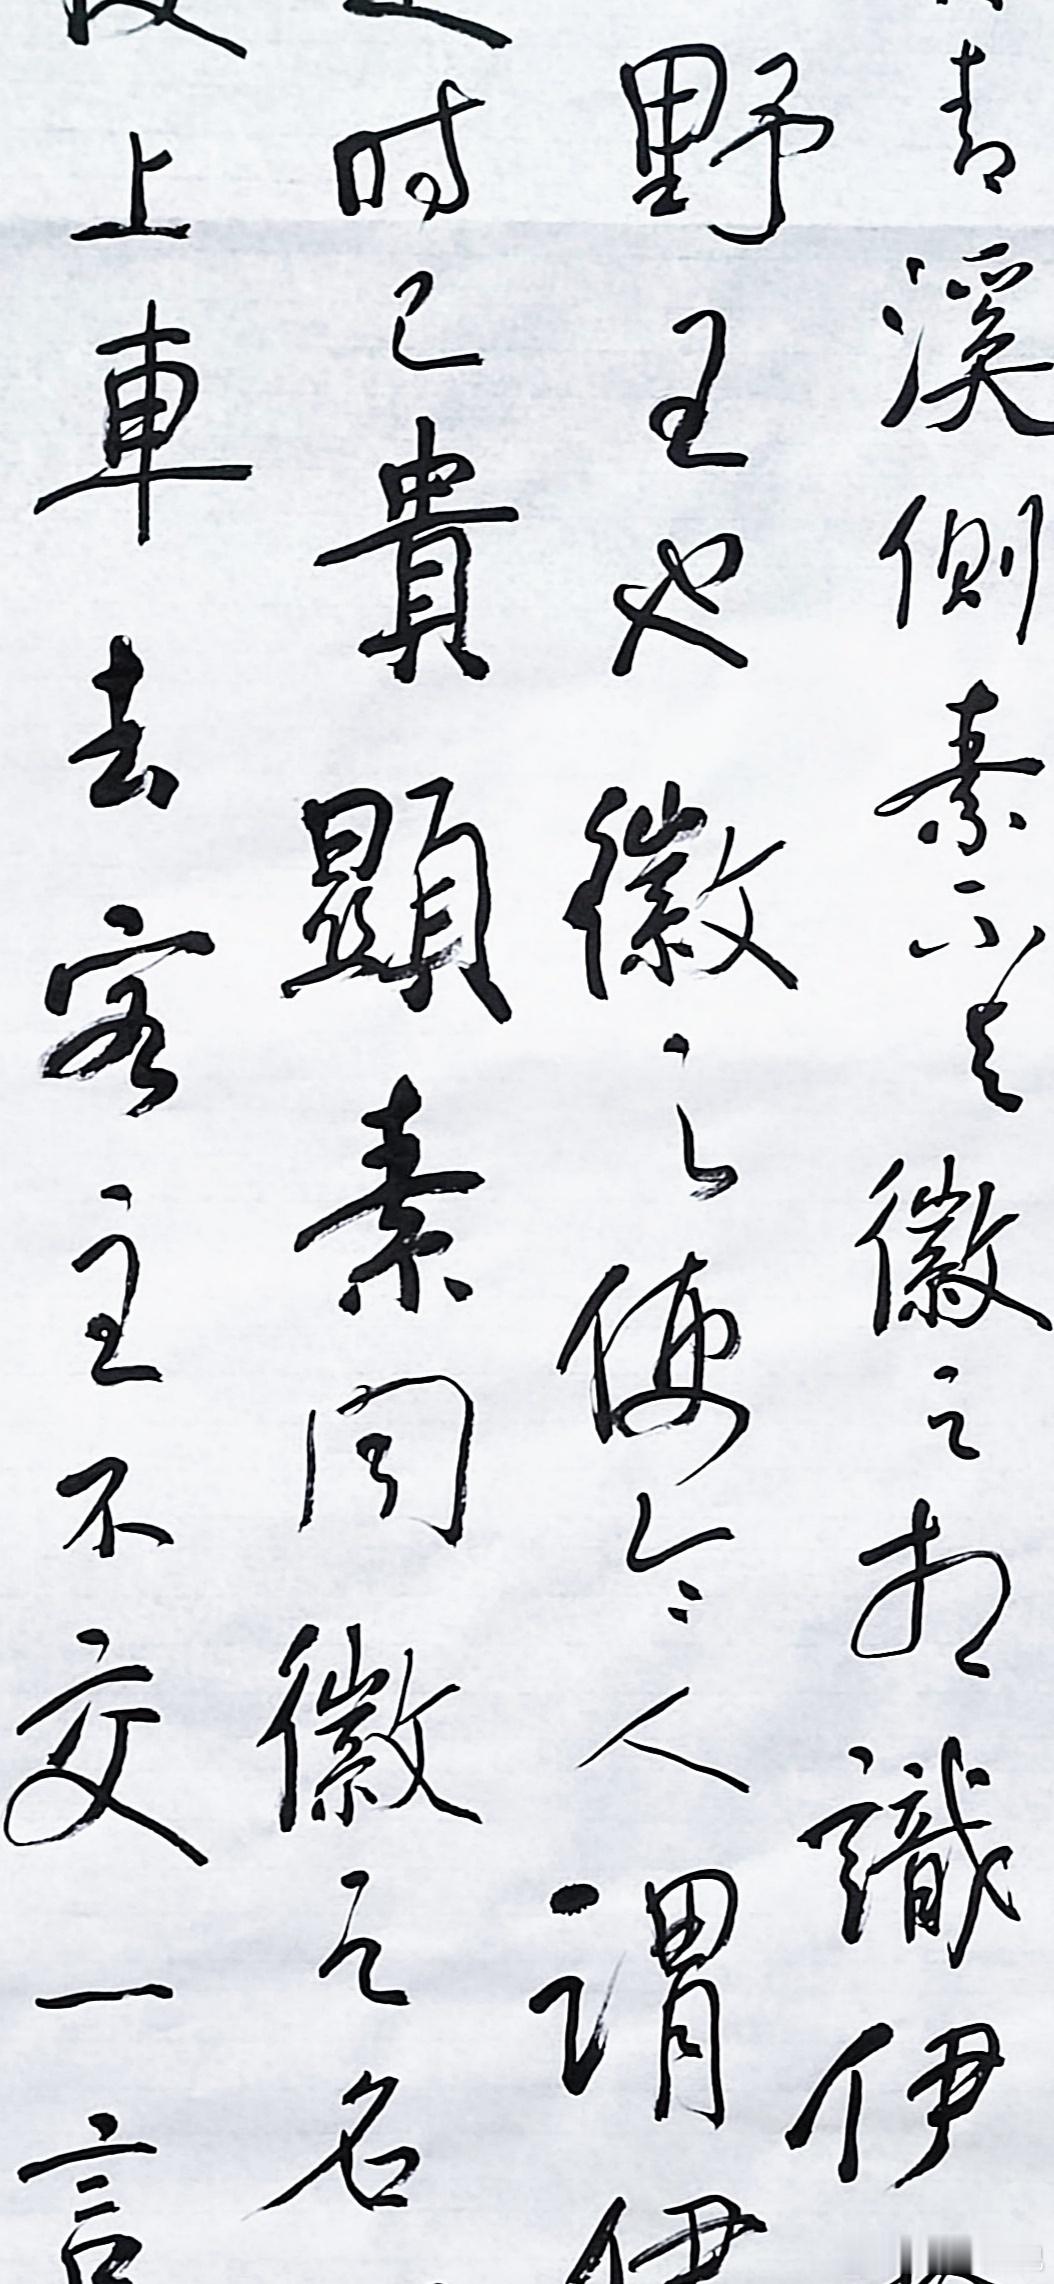 青溪側素不与徽之相識伊
野王也徽之便令人謂伊
時已貴顯素聞徽之名
上車去客主不交一言